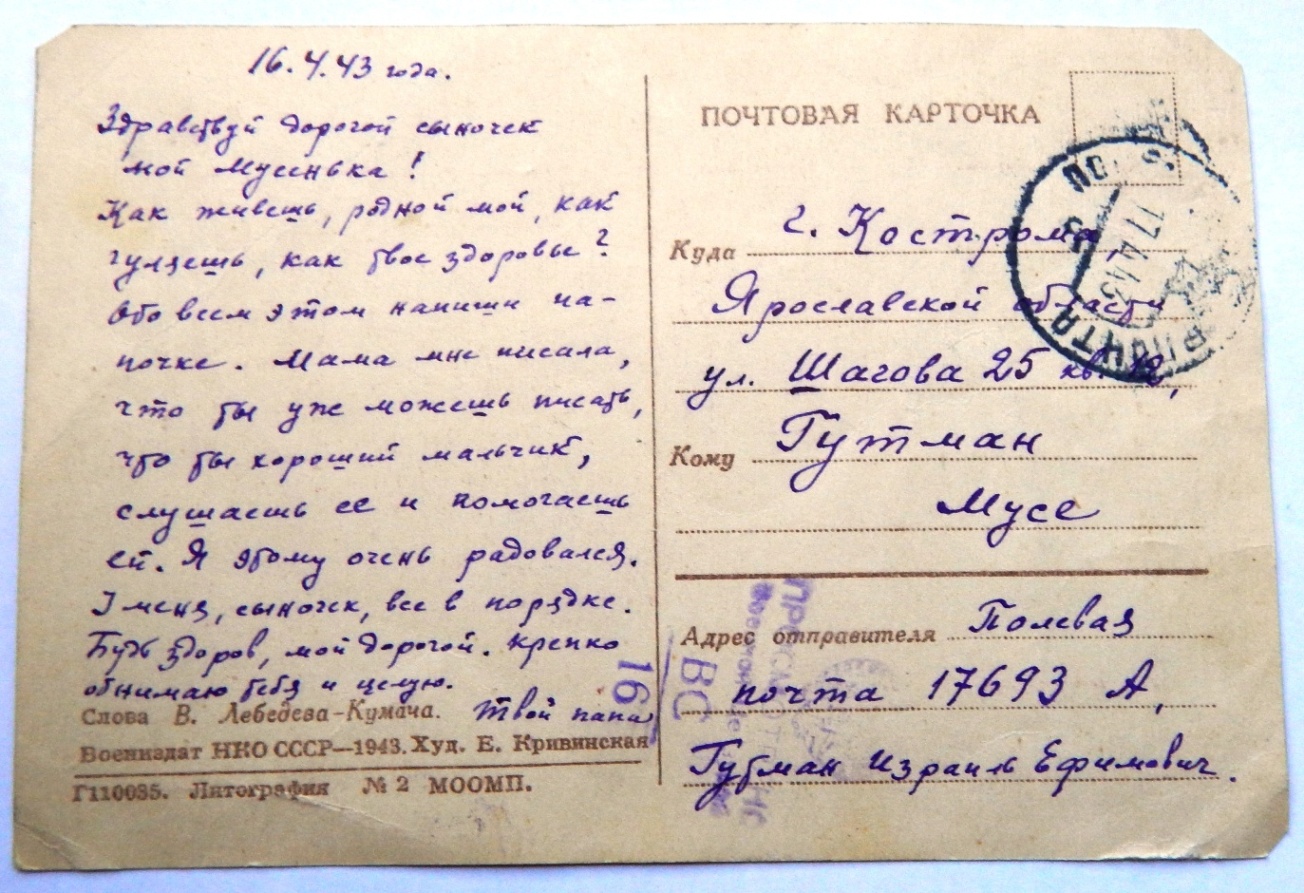 16.4.43 года.
Здравствуй дорогой сыночек
мой Мусенька!
Как живешь, родной мой, как
гуляешь, как твое здоровье?
Обо всем этом напиши па-
почке. Мама мне писала,
что ты уже можешь писать,
что ты хороший мальчик,
слушаешь ее и помогаешь
ей. Я этому очень радовался.
У меня, сыночек, все в порядке.
Будь здоров, мой дорогой. Крепко
обнимаю тебя и целую.
Твой папа
Слова В. Лебедева-Кумача.
Воениздат НКО СССР—1943. Худ. Е. Кривинская
Г110035. Литография № 2 МООМП.
ПОЧТОВАЯ КАРТОЧКА
Куда г. Кострома
Ярославской области
ул. Шагова 25 кв. 12,
Кому Гутман
Мусе
Адрес отправителя Полевая
почта 17693 А,
Гутман Израиль Ефимович.
17 4 43
ПОЧТА
ПРОСМОТРЕНО
16
ВС